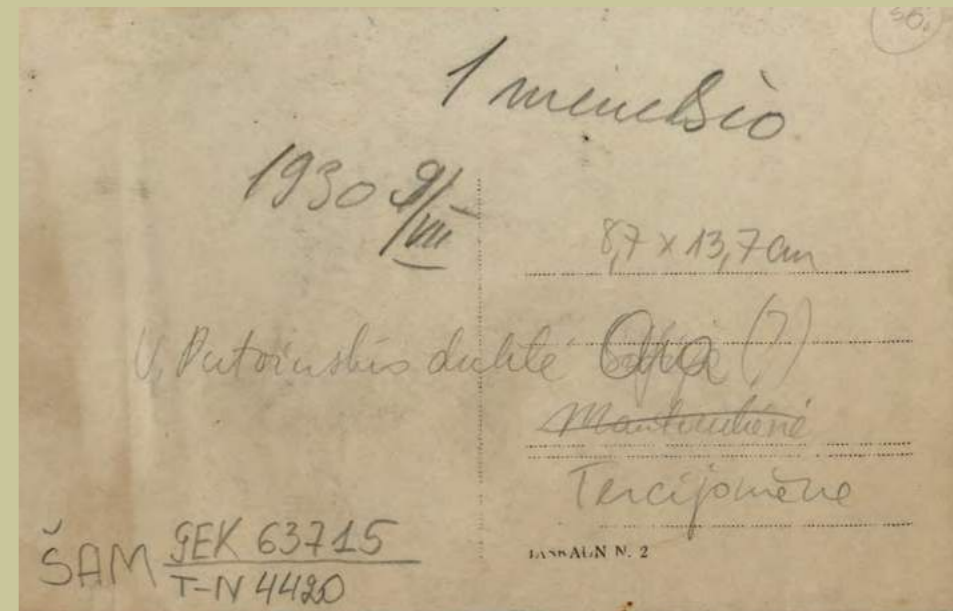 56.
1 mėnesio
1930 9/VIII
8,7 x 13,7 cm
V. Putvinskio duktė Ona (?)
Mantvilienė
Tercijonienė
ŠAM GEK 63715
T-N 4420
N. 2